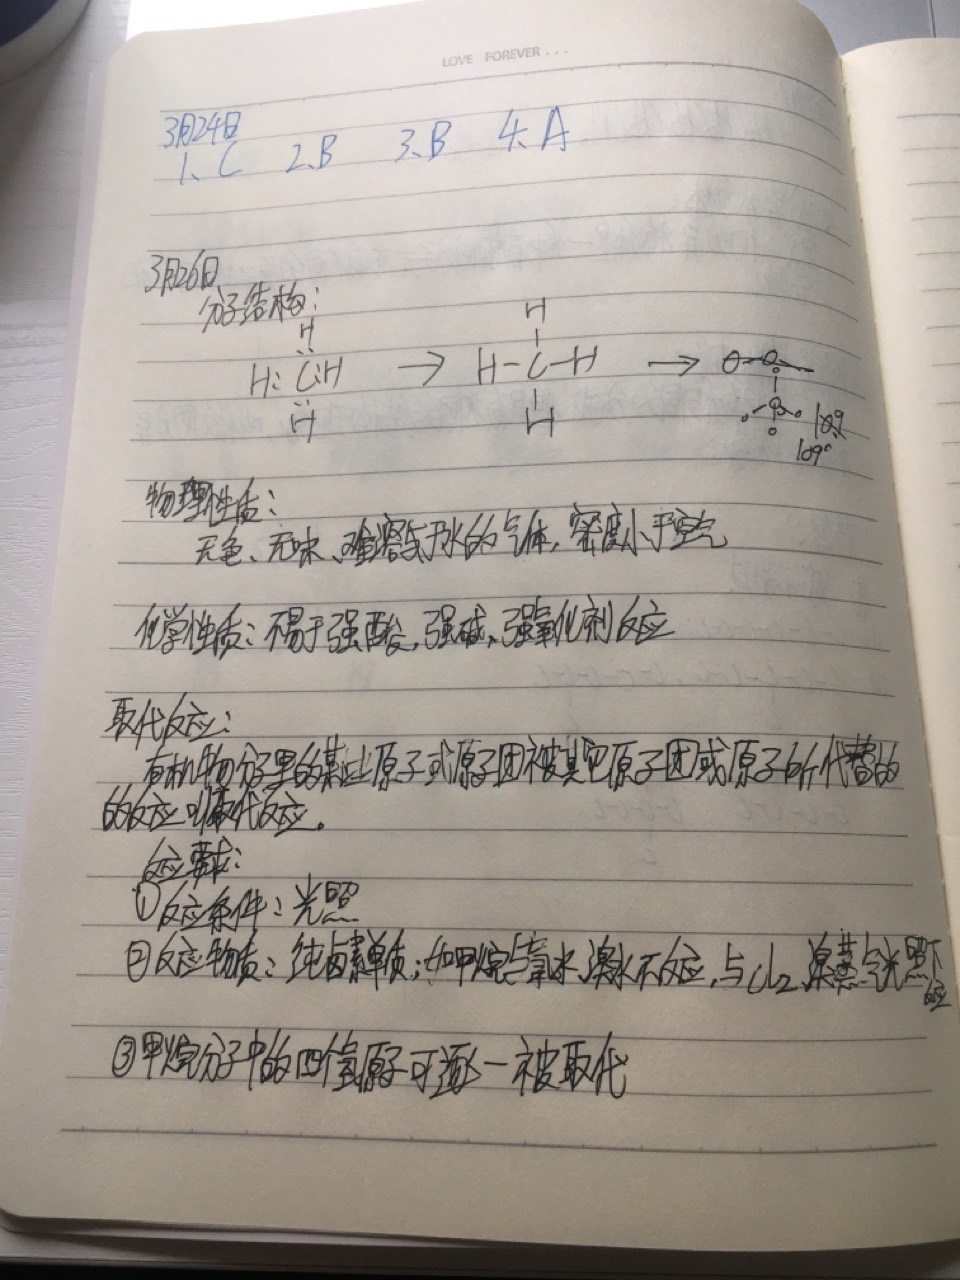 LOVE FOREVER...
3月24日
1、C 2、B 3、B 4、A
3月26日
分子结构：
H
H:C:H
H
→
H
H-C-H
H
→
109
109°
物理性质：
无色、无味、难溶于水的气体，密度小于空气
化学性质：不易于强酸，强碱、强氧化剂反应
取代反应：
有机物分子里的某些原子或原子团被其它原子团或原子所代替的
的反应叫取代反应。
反应要求：
①反应条件：光照
②反应物质：纯卤素单质；如甲烷与氯水、溴水不反应，与Cl2、溴蒸气光照下
反应
③甲烷分子中的四个氢原子可逐一被取代